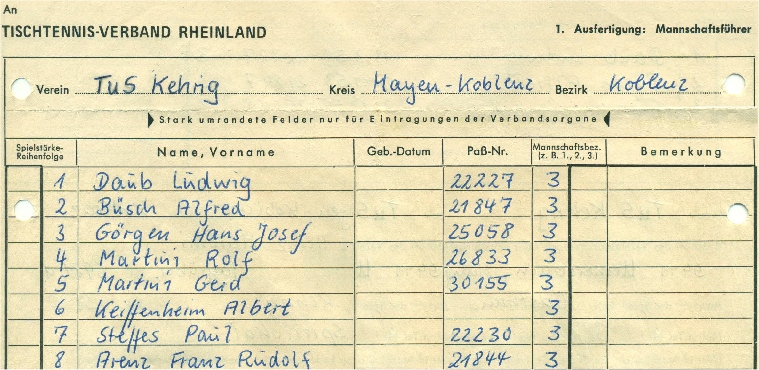 An
TISCHTENNIS-VERBAND RHEINLAND
1. Ausfertigung: Mannschaftsführer
Verein TuS Kehrig Kreis Mayen-Koblenz Bezirk Koblenz
Stark umrandete Felder nur für Eintragungen der Verbandsorgane
Spielstärke-Reihenfolge Name, Vorname Geb.-Datum Paß-Nr. Mannschaftsbez. (z. B. 1., 2., 3.) Bemerkung
1 Daub Ludwig 22227 3
2 Büsch Alfred 21847 3
3 Görgen Hans Josef 25058 3
4 Martini Rolf 26833 3
5 Martini Gerd 30155 3
6 Keiffenheim Albert 3
7 Steffes Paul 22230 3
8 Arenz Franz Rudolf 21844 3